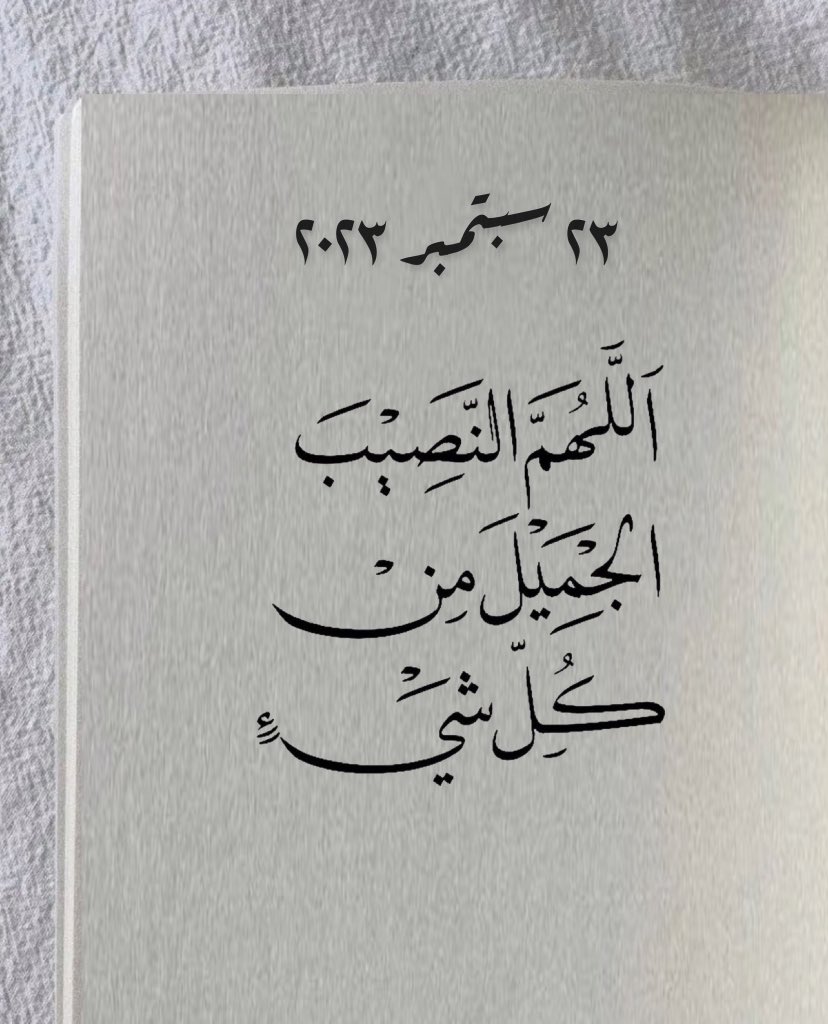 ٢٣ سبتمبر ٢٠٢٣
اَللَّهُمَّ النَّصِيْبَ
الْجَمِيْلَ مِنْ
كُلِّ شَيْءٍ